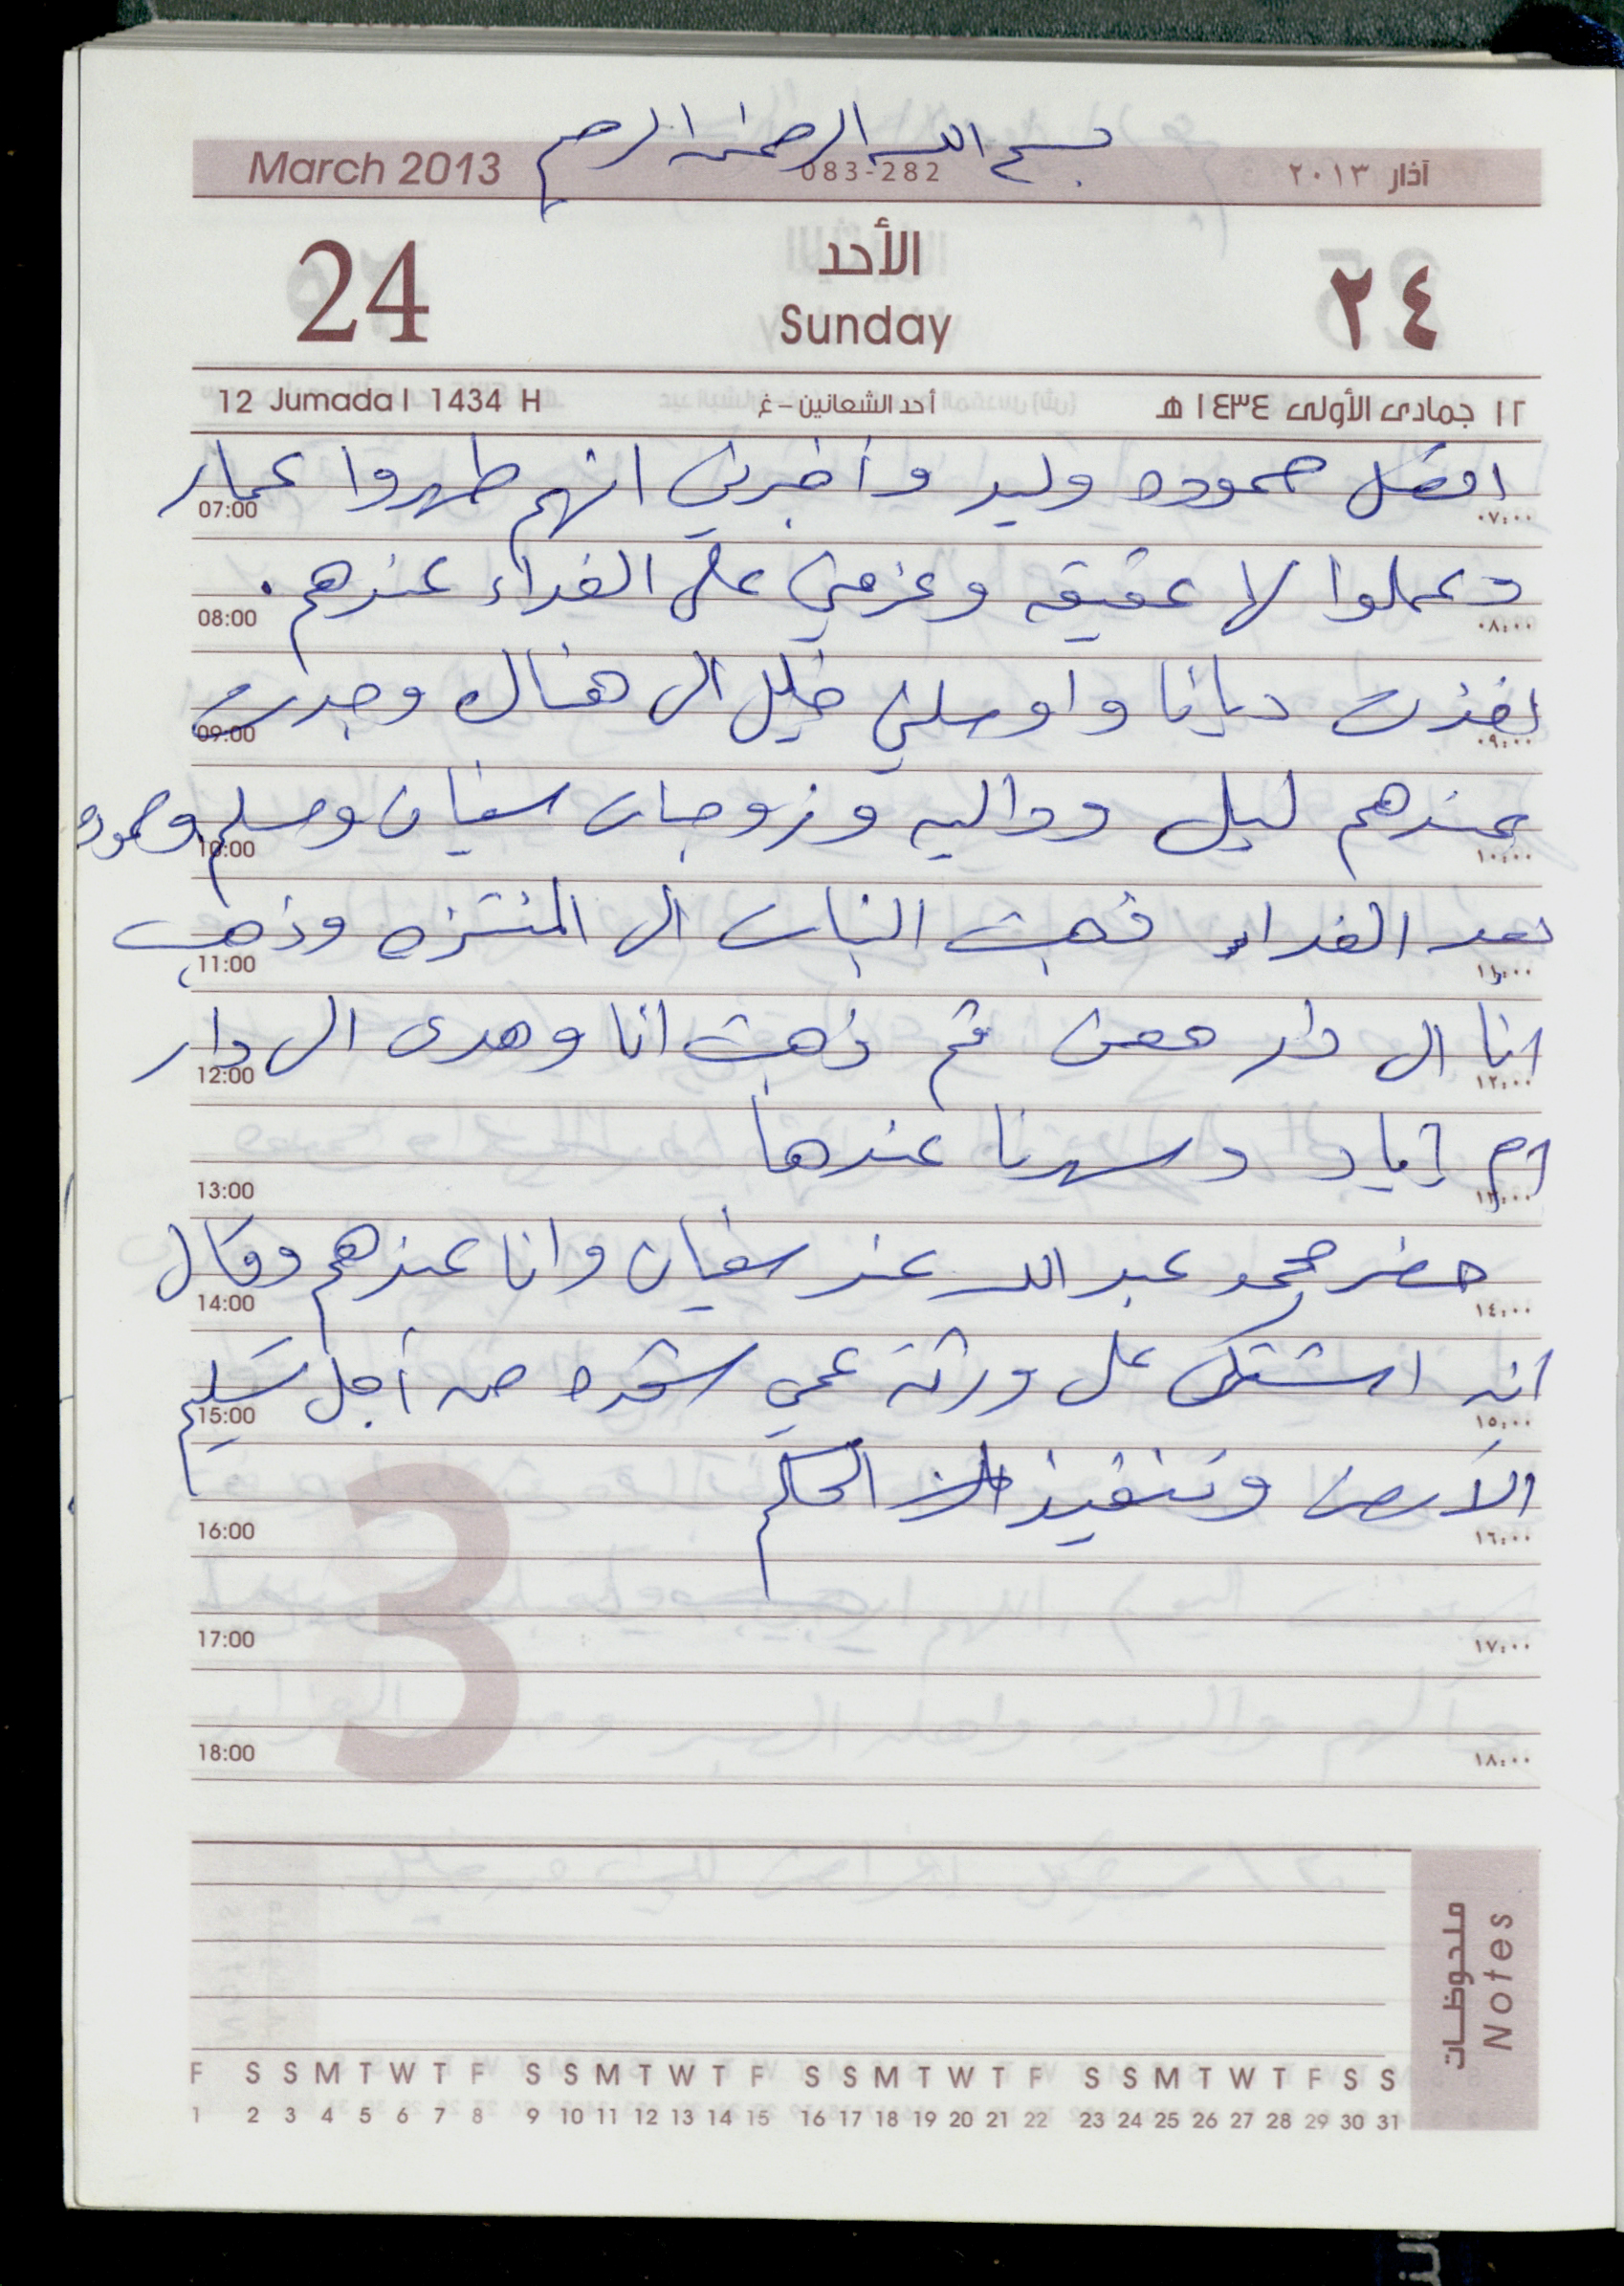 بسم الله الرحمن الرحيم
March 2013 083-282 آذار ٢٠١٣
24 الأحد ٢٤
Sunday
12 Jumada I 1434 H أحد الشعانين – غ ١٢ جمادى الأولى ١٤٣٤ هـ
اتصل حموده وليد وأخبرني انهم طهروا عمار
07:00 ٠٧:٠٠
وعملوا لا عقيقه وعزمني على الغداء عندهم.
08:00 ٠٨:٠٠
اخذت ديانا واوصلني خليل الى هناك وجدت
09:00 ٠٩:٠٠
عندهم ليل وداليه وزوجات سفيان ومسلم وحموده
10:00 ١٠:٠٠
بعد الغداء ذهبت البنات الى المنتزه وذهبت
11:00 ١١:٠٠
انا الى دار معن ثم ذهبت انا وهدى الى دار
12:00 ١٢:٠٠
ام اياد وسهرنا عندها
13:00 ١٣:٠٠
حضر محمد عبد الله عند سفيان وانا عندهم وقال
14:00 ١٤:٠٠
انه اشتكى على ورثة عمي شحده من أجل تسليم
15:00 ١٥:٠٠
الأرض وتنفيذ الحكم
16:00 ١٦:٠٠
17:00 ١٧:٠٠
18:00 ١٨:٠٠
3
ملحوظات
Notes
F S S M T W T F S S M T W T F S S M T W T F S S M T W T F S S
1 2 3 4 5 6 7 8 9 10 11 12 13 14 15 16 17 18 19 20 21 22 23 24 25 26 27 28 29 30 31